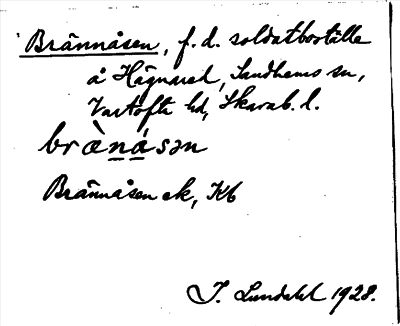 Brännåsen, f. d. soldatboställe
å Hägnared, Sandhems sn,
Vartofta hd, Skarab. l.
brànásən
Brännåsen ek, Kb
J. Lundahl 1928.